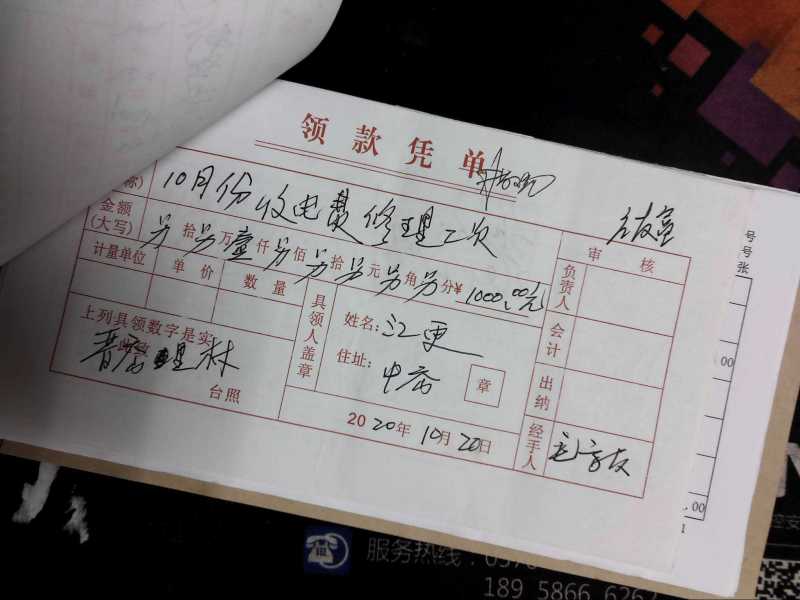 领款凭单
称)
10月份收电费修理二次
金额
(大写)
另拾另万壹仟另佰另拾另元另角另分¥ 1000.00元
计量单位 单价 数量
上列具领数字是实
台照
具领人盖章
姓名: 江更
住址: 中店
章
2020年10月20日
审核
负责人
会计
出纳
经手人
号
号
张
00
.00
服务热线:
18958666262